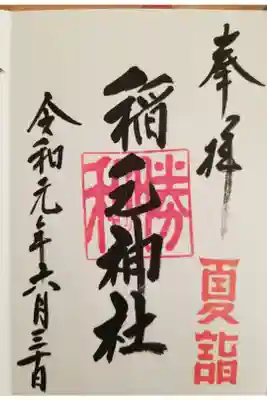 奉拝
夏詣
稲毛神社
令和元年六月三十日